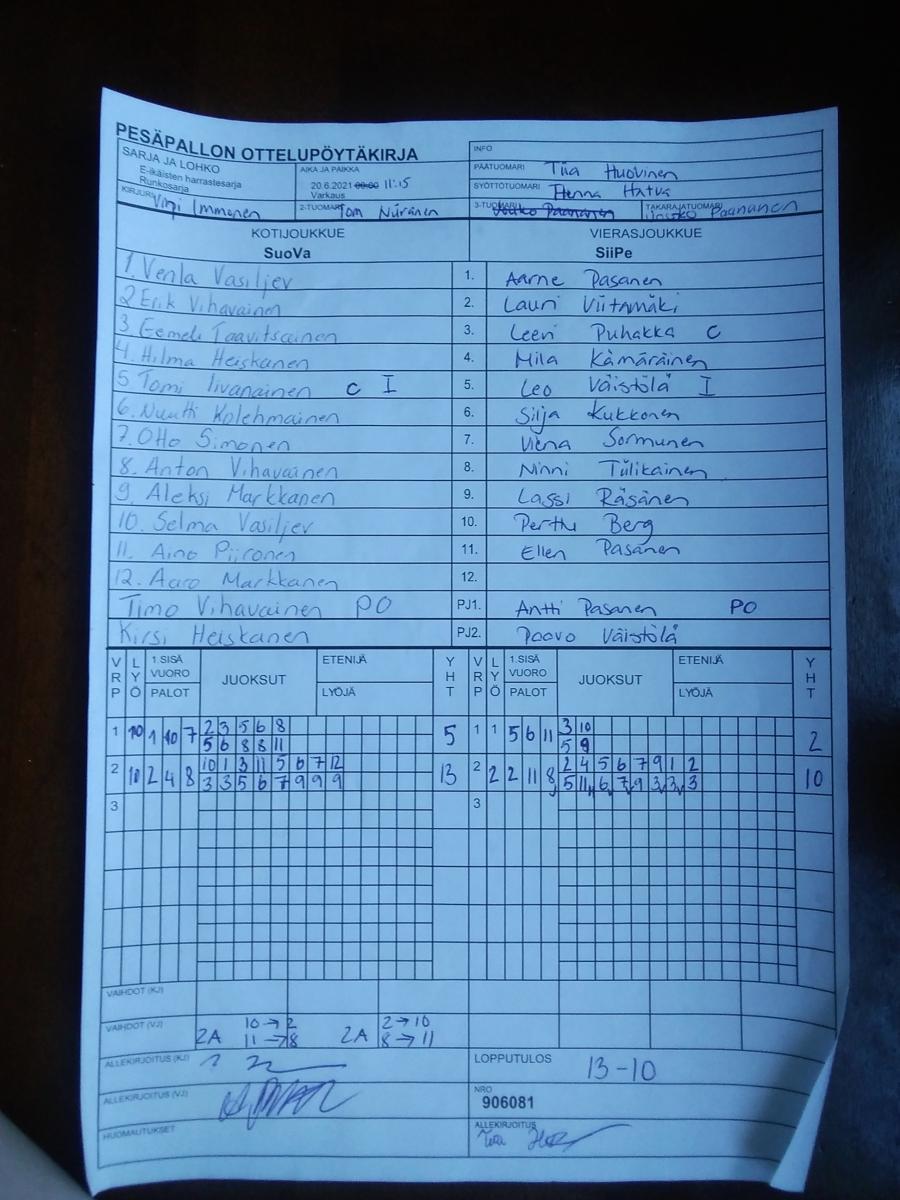 PESÄPALLON OTTELUPÖYTÄKIRJA
INFO
SARJA JA LOHKO
E-ikäisten harrastesarja
Runkosarja
AIKA JA PAIKKA
20.6.2021 09:00 11:15
Varkaus
PÄÄTUOMARI Tiia Huovinen
SYÖTTÖTUOMARI Henna Hatva
KIRJURI Virpi Immonen
2-TUOMARI Tom Niiranen
3-TUOMARI Paananen
TAKARAJATUOMARI Paananen
KOTIJOUKKUE VIERASJOUKKUE
SuoVa SiiPe
1. Venla Vasiljev 1. Aarne Pasanen
2 Erik Vihavainen 2. Lauri Viitamäki
3. Eemeli Taavitsainen 3. Leevi Puhakka C
4. Hilma Heiskanen 4. Mila Kämäräinen
5 Tomi Iivanainen C I 5. Leo Väistölä I
6. Nuutti Kolehmainen 6. Silja Kukkonen
7. Otto Simonen 7. Viena Sormunen
8. Anton Vihavainen 8. Ninni Tulikainen
9. Aleksi Markkanen 9. Lassi Räsänen
10. Selma Vasiljev 10. Perttu Berg
11. Aino Piironen 11. Ellen Pasanen
12. Aaro Markkanen 12.
Timo Vihavainen PO PJ1. Antti Pasanen PO
Kirsi Heiskanen PJ2. Paavo Väistölä
VRP LYÖ 1.SISÄ VUORO PALOT JUOKSUT ETENIJÄ LYÖJÄ YHT VRP LYÖ 1.SISÄ VUORO PALOT JUOKSUT ETENIJÄ LYÖJÄ YHT
1 10 1 10 7 2 3 5 6 8 5 1 1 5 6 11 3 10 2
5 6 8 8 11 5 9
2 10 2 4 8 10 1 3 11 5 6 7 12 13 2 2 2 11 8 2 4 5 6 7 9 1 2 10
3 3 5 6 7 9 9 9 5 11 6 7 9 3 3 3
3 3
VAIHDOT (KJ)
VAIHDOT (VJ) 2A 10→2 2A 2→10
11→8 8→11
ALLEKIRJOITUS (KJ) LOPPUTULOS 13-10
ALLEKIRJOITUS (VJ) NRO
906081
HUOMAUTUKSET ALLEKIRJOITUS